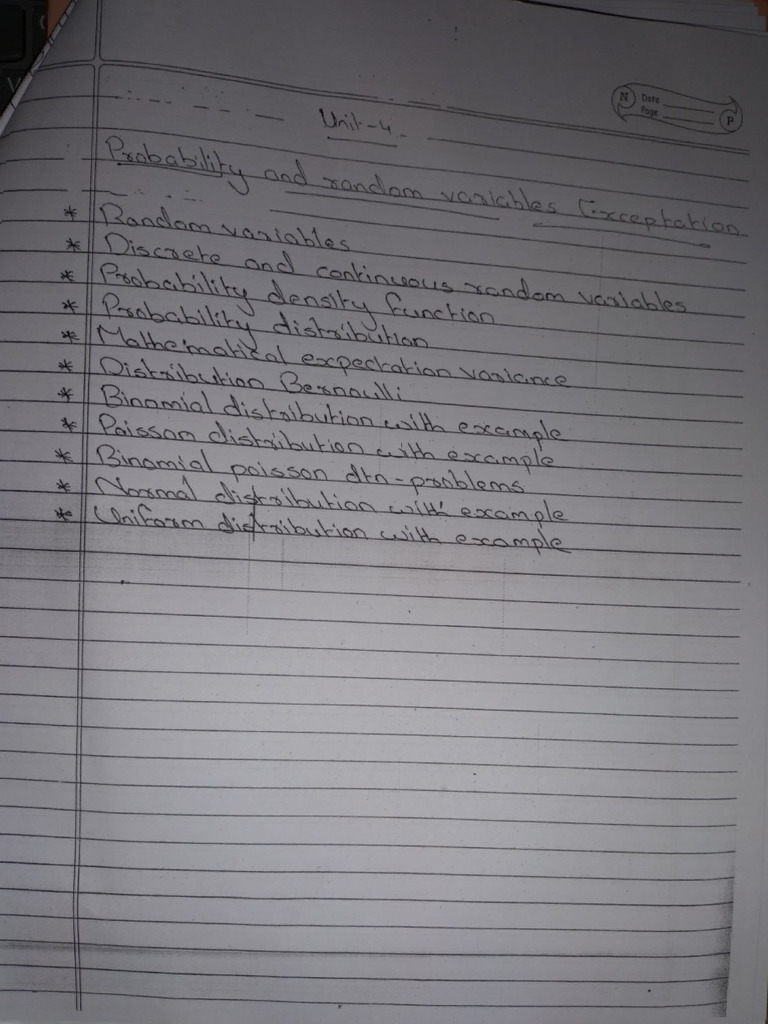 N Date
Page P
Unit-4
Probability and random variables Exceptation
* Random variables
* Discrete and continuous random variables
* Probability density function
* Probability distribution
* Mathematical expectation variance
* Distribution Bernoulli
* Binomial distribution with example
* Poisson distribution with example
* Binomial poisson dtn-problems
* Normal distribution with example
* Uniform distribution with example